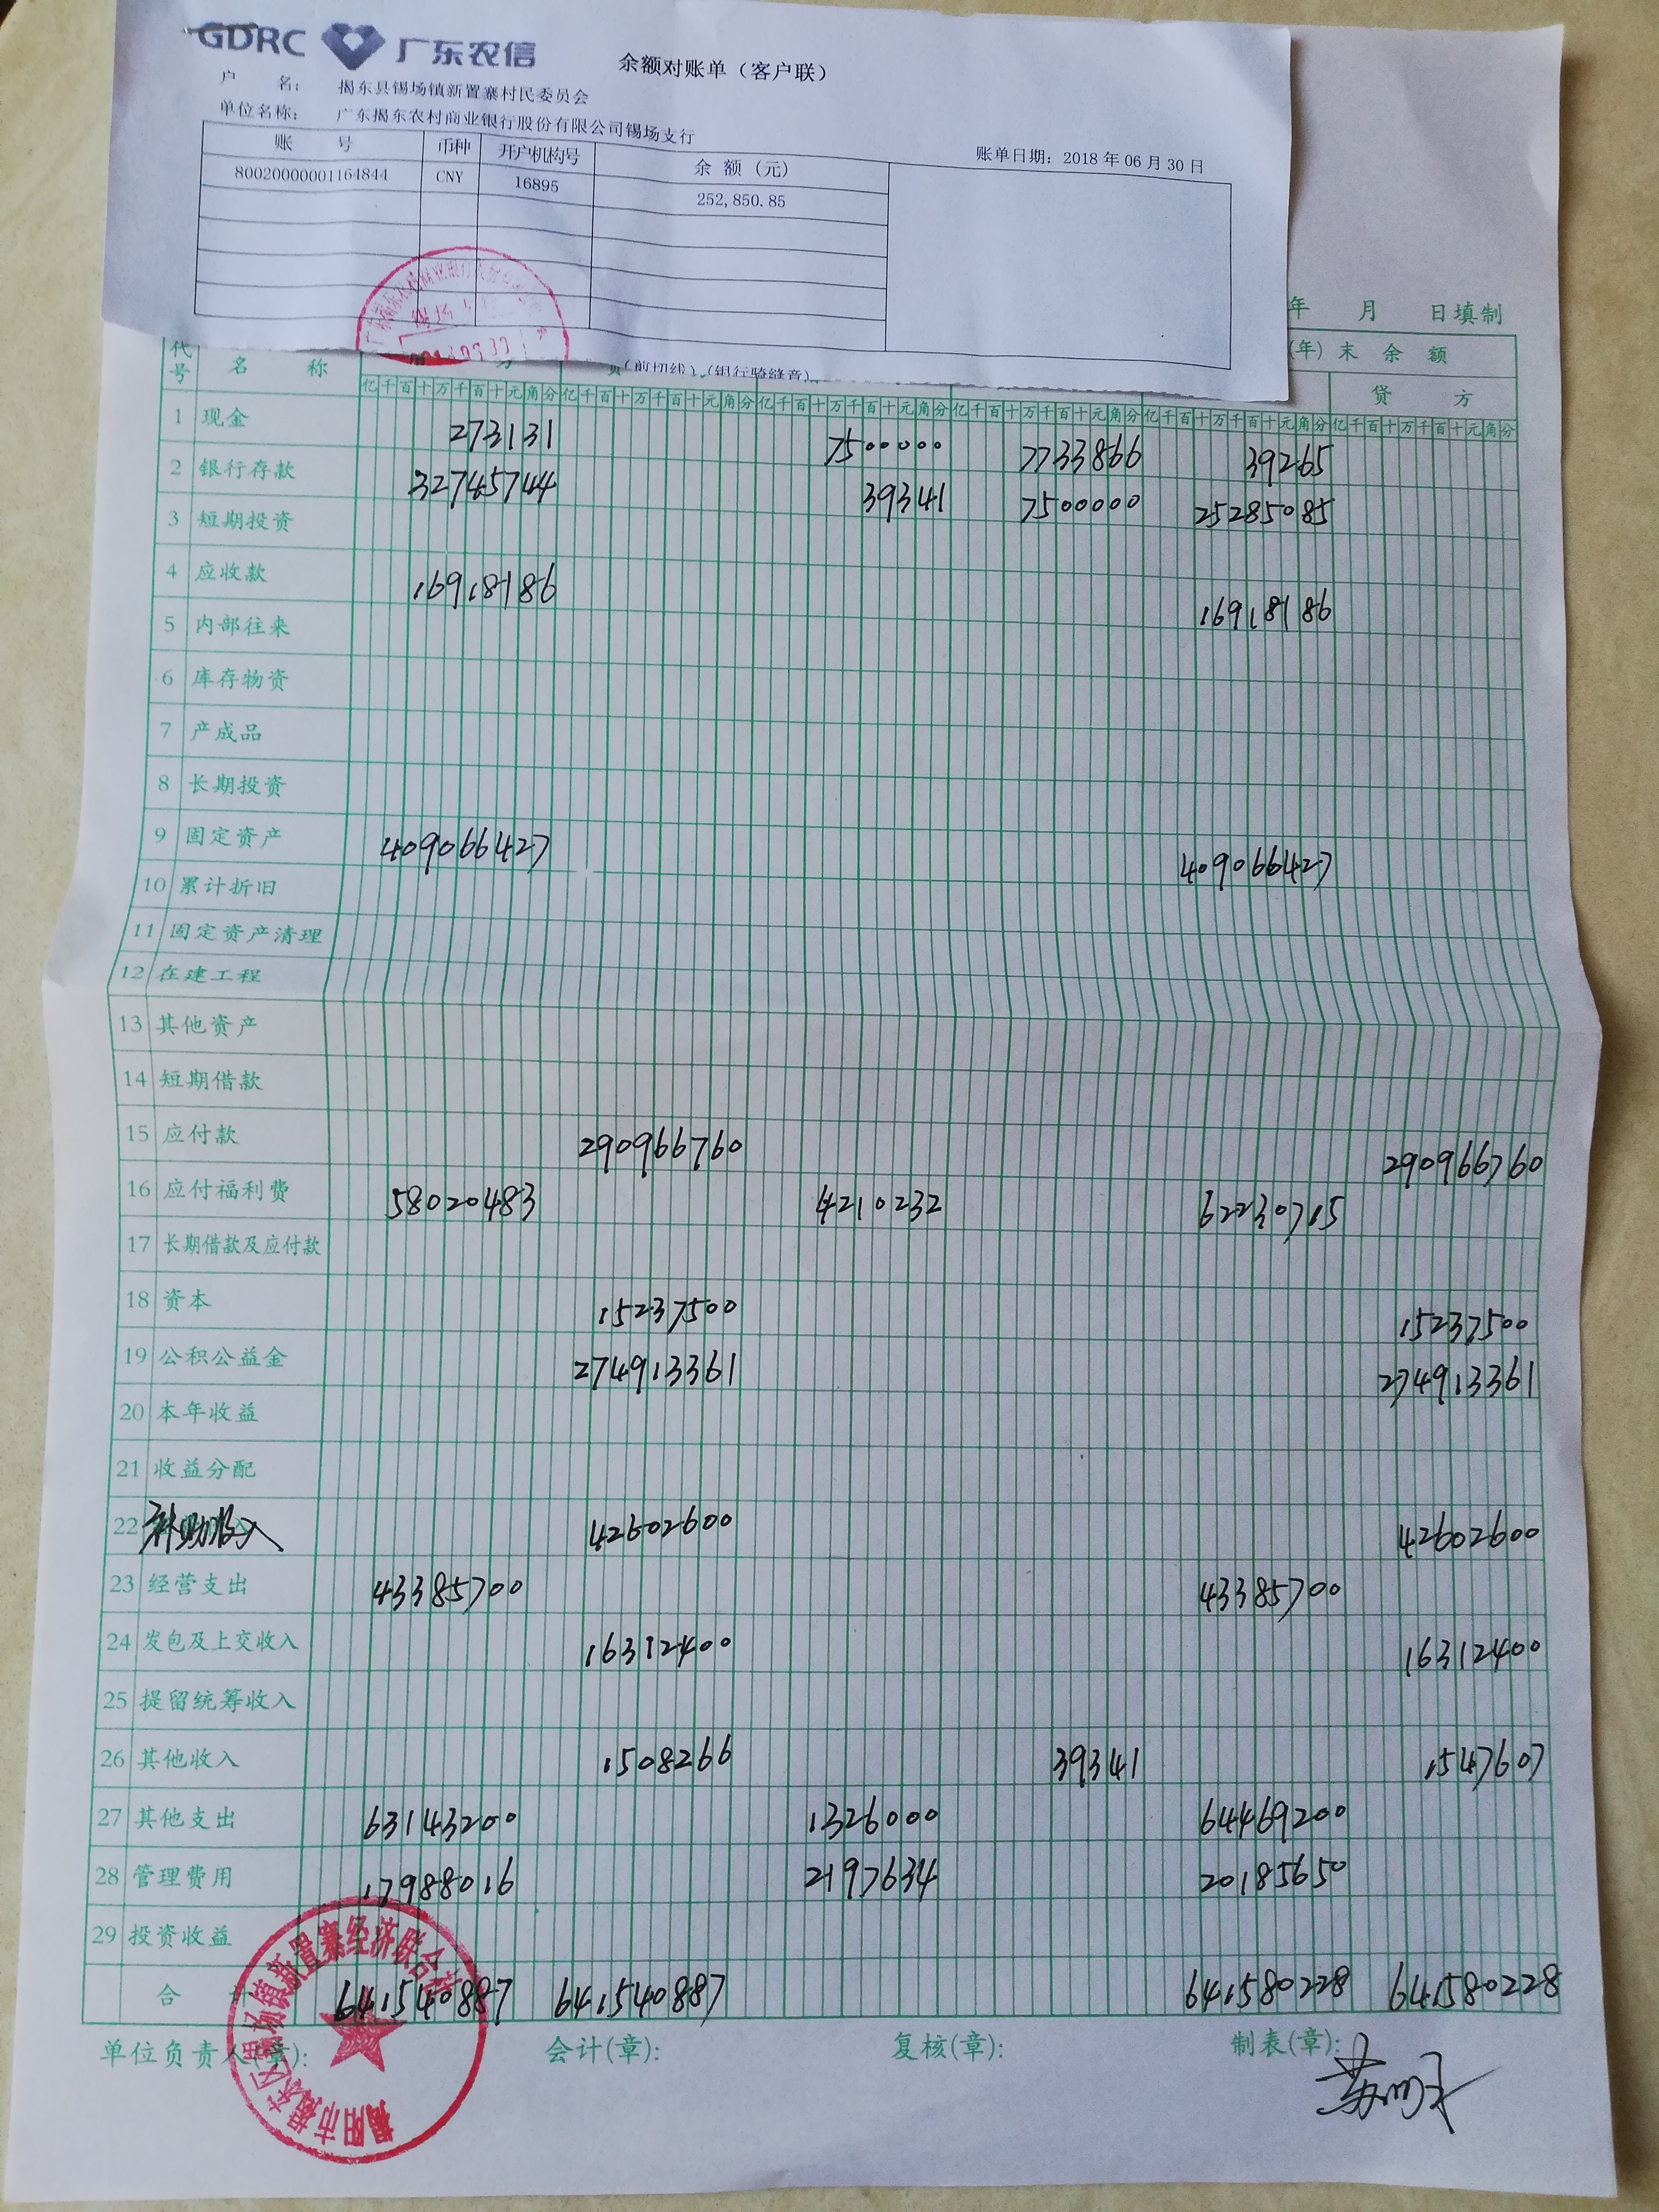 GDRC 广东农信
余额对账单（客户联）
户 名： 揭东县锡场镇新置寨村民委员会
单位名称： 广东揭东农村商业银行股份有限公司锡场支行
账单日期：2018年06月30日
账 号 币种 开户机构号 余 额（元）
80020000001164844 CNY 16895 252,850.85
（剪切线）（银行骑缝章）
年 月 日填制
代号 名 称 (年) 末 余 额
贷 方
亿千百十万千百十元角分 亿千百十万千百十元角分 亿千百十万千百十元角分 亿千百十万千百十元角分 亿千百十万千百十元角分 亿千百十万千百十元角分
1 现金 273131 7500000 7733866 39265
2 银行存款 32745744 39341 7500000 25285085
3 短期投资
4 应收款 16918186 16918186
5 内部往来
6 库存物资
7 产成品
8 长期投资
9 固定资产 409066427 409066427
10 累计折旧
11 固定资产清理
12 在建工程
13 其他资产
14 短期借款
15 应付款 290966760 290966760
16 应付福利费 58020483 4210232 62230715
17 长期借款及应付款
18 资本 15237500 15237500
19 公积公益金 274913361 274913361
20 本年收益
21 收益分配
22 补助收入 42602600 42602600
23 经营支出 43385700 43385700
24 发包及上交收入 16312400 16312400
25 提留统筹收入
26 其他收入 1508266 39341 1547607
27 其他支出 63143200 1326000 64469200
28 管理费用 17988016 2197634 20185650
29 投资收益
合 641540887 641540887 641580228 641580228
单位负责人(章): 会计(章): 复核(章): 制表(章):
揭阳市揭东区锡场镇新置寨经济联合社